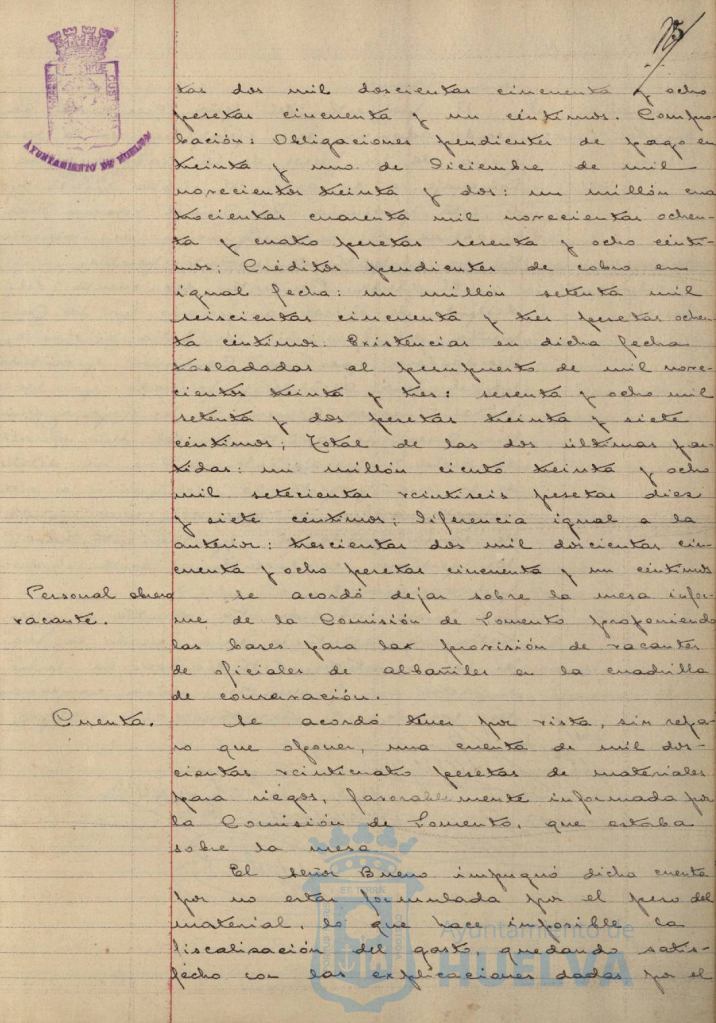 AYUNTAMIENTO DE HUELVA
tas dos mil doscientas cincuenta y ocho
pesetas cincuenta y un céntimos. Compro-
bación: Obligaciones pendientes de pago en
treinta y uno de Diciembre de mil
novecientos treinta y dos: un millón cua
trocientas cuarenta mil novecientas ochen-
ta y cuatro pesetas sesenta y ocho cénti-
mos; Créditos pendientes de cobro en
igual fecha: un millón setenta mil
seiscientas cincuenta y tres pesetas ochen-
ta céntimos: Existencias en dicha fecha
trasladadas al presupuesto de mil nove-
cientos treinta y tres: sesenta y ocho mil
setenta y dos pesetas treinta y siete
céntimos; Total de las dos últimas par-
tidas: un millón ciento treinta y ocho
mil setecientas veintiseis pesetas diez
y siete céntimos; Diferencia igual a la
anterior: trescientas dos mil doscientas cin-
cuenta y ocho pesetas cincuenta y un céntimos
Personal obrero
vacante.
Se acordó dejar sobre la mesa infor-
me de la Comisión de Fomento proponiendo
las bases para las provisión de vacantes
de oficiales de albañiles en la cuadrilla
de conservación.
Cuenta.
Se acordó tener por vista, sin repa-
ro que oponer, una cuenta de mil dos-
cientas veinticuatro pesetas de materiales
para riegos, favorablemente informada por
la Comisión de Fomento, que estaba
sobre la mesa
El señor Bueno impugnó dicha cuenta
por no estar formulada por el peso del
material, lo que hace imposible la
fiscalización del gasto quedando satis-
fecho con las explicaciones dadas por el
Ayuntamiento de
HUELVA